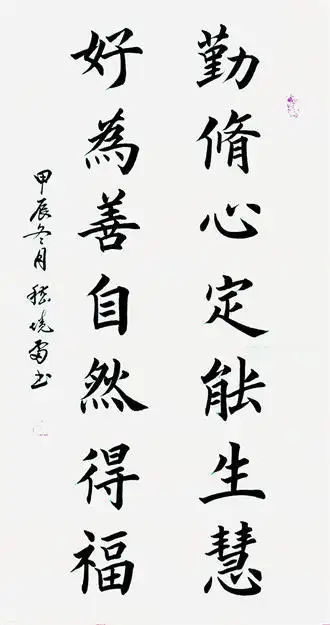 勤脩心定能生慧
好為善自然得福
甲辰冬月嵇曉雷书